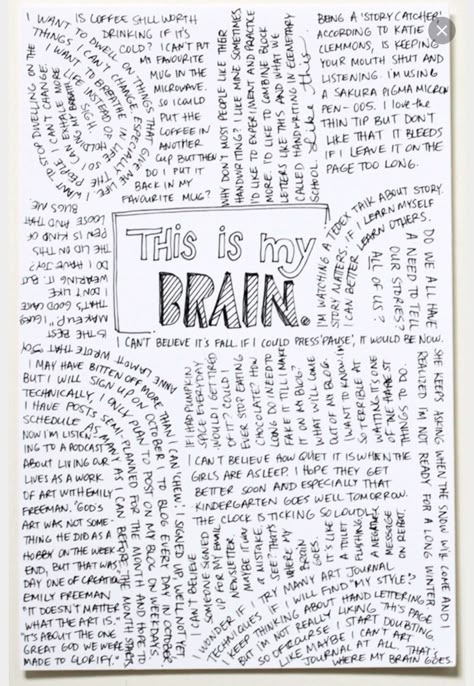 I WANT TO DWELL ON THINGS THAT GIVE ME LIFE
I WANT TO STOP DWELLING ON THE
THINGS I CAN'T CHANGE. ESPECIALLY THE
PEOPLE I CAN'T CHANGE.
I WANT TO BREATHE IN LIFE SO I CAN
EXHALE MORE
LIFE INSTEAD OF HOLDING MY BREATH
SIGH.
IS COFFEE STILL WORTH
DRINKING IF IT'S
COLD? I CAN'T PUT
MY FAVOURITE
MUG IN THE
MICROWAVE.
SO I COULD
PUT THE
COFFEE IN
ANOTHER
CUP BUT THEN
DO I PUT IT
BACK IN MY
FAVOURITE MUG?
WHY DON'T MOST PEOPLE LIKE THEIR
HANDWRITING? I LIKE MINE SOMETIMES.
I'D LIKE TO EXPERIMENT AND PRACTICE
MORE. I'D LIKE TO COMBINE BLOCK
LETTERS LIKE THIS AND WHAT WE
CALLED HANDWRITING IN ELEMENTARY
SCHOOL. Like this.
BEING A 'STORY CATCHER'
ACCORDING TO KATIE
CLEMMONS, IS KEEPING
YOUR MOUTH SHUT AND
LISTENING. I'M USING
A SAKURA PIGMA MICRON
PEN-005. I LOVE THE
THIN TIP BUT DON'T
LIKE THAT IT BLEEDS
IF I LEAVE IT ON THE
PAGE TOO LONG.
I'M WATCHING A TEDEX TALK ABOUT STORY.
STORY MATTERS. IF I LEARN MYSELF
I CAN BETTER LEARN OTHERS.
DO WE ALL HAVE
A NEED TO TELL
OUR STORIES?
ALL OF US?
THIS is my
BRAIN.
ANNE LAMOTT WROTE THAT "JOY
IS THE BEST
MAKEUP"
THAT'S GOOD CAUSE
I DON'T LIKE
WEARING IT. BUT
DO I HAVE JOY?
THE LID ON THIS
PEN IS KIND OF
LOOSE AND THAT
BUGS ME
I CAN'T BELIEVE IT'S FALL. IF I COULD PRESS 'PAUSE', IT WOULD BE NOW.
I MAY HAVE BITTEN OFF MORE THAN I CAN CHEW. I SIGNED UP, WELL NOT YET
BUT I WILL SIGN UP ON OCTOBER TO BLOG EVERY DAY IN OCTOBER
TECHNICALLY, I ONLY PLAN TO POST ON MY BLOG ON WEEKDAYS
I HAVE POSTS SEMI-PLANNED FOR THE MONTH AND HOPE TO
SCHEDULE AS MANY AS I CAN BEFORE THE MONTH STARTS.
NOW I'M LISTEN-
ING TO A PODCAST
ABOUT LIVING OUR
LIVES AS A WORK
OF ART WITH EMILY
FREEMAN. "GOD'S
ART WAS NOT SOME-
THING HE DID AS A
HOBBY ON THE WEEK
END, BUT THAT WAS
DAY ONE OF CREATION
EMILY FREEMAN
"IT DOESN'T MATTER
WHAT THE ART IS."
"IT'S ABOUT THE ONE
GREAT GOD WE WERE
MADE TO GLORIFY."
IF I HAD PUMPKIN
SPICE EVERYDAY
WOULD I GET TIRED
OF IT? COULD I
EVER STOP EATING
CHOCOLATE? HOW
LONG DO I NEED TO
FAKE IT TILL I MAKE
IT ON MY BLOG?
WHAT WILL COME
OUT OF MY BLOG.
I WANT TO KNOW. I'M
SO TERRIBLE AT
WAITING. IT'S ONE
OF THE HARDEST
THINGS TO DO.
SHE KEEPS ASKING WHEN THE SNOW WILL COME AND I
REALIZED I'M NOT READY FOR A LONG WINTER
I CAN'T BELIEVE HOW QUIET IT IS WHEN THE
GIRLS ARE ASLEEP. I HOPE THEY GET
BETTER SOON AND ESPECIALLY THAT
KINDERGARTEN GOES WELL TOMORROW.
THE CLOCK IS TICKING SO LOUDLY.
I CAN'T BELIEVE
SOMEONE SIGNED
UP FOR MY EMAIL
NEWSLETTER.
MAYBE IT WAS
A MISTAKE.
SEE? THAT'S
WHERE MY
BRAIN
GOES.
IT'S LIKE
A TOILET
FLUSHING.
A NEGATIVE
MESSAGE
ON REPEAT.
I WONDER IF I TRY MANY ART JOURNAL
TECHNIQUES IF I WILL FIND "MY STYLE?"
I KEEP THINKING ABOUT HAND LETTERING
BUT I'M NOT REALLY LIKING THIS PAGE
SO OF COURSE I START DOUBTING
LIKE MAYBE I CAN'T ART
JOURNAL AT ALL. THAT'S
WHERE MY BRAIN GOES